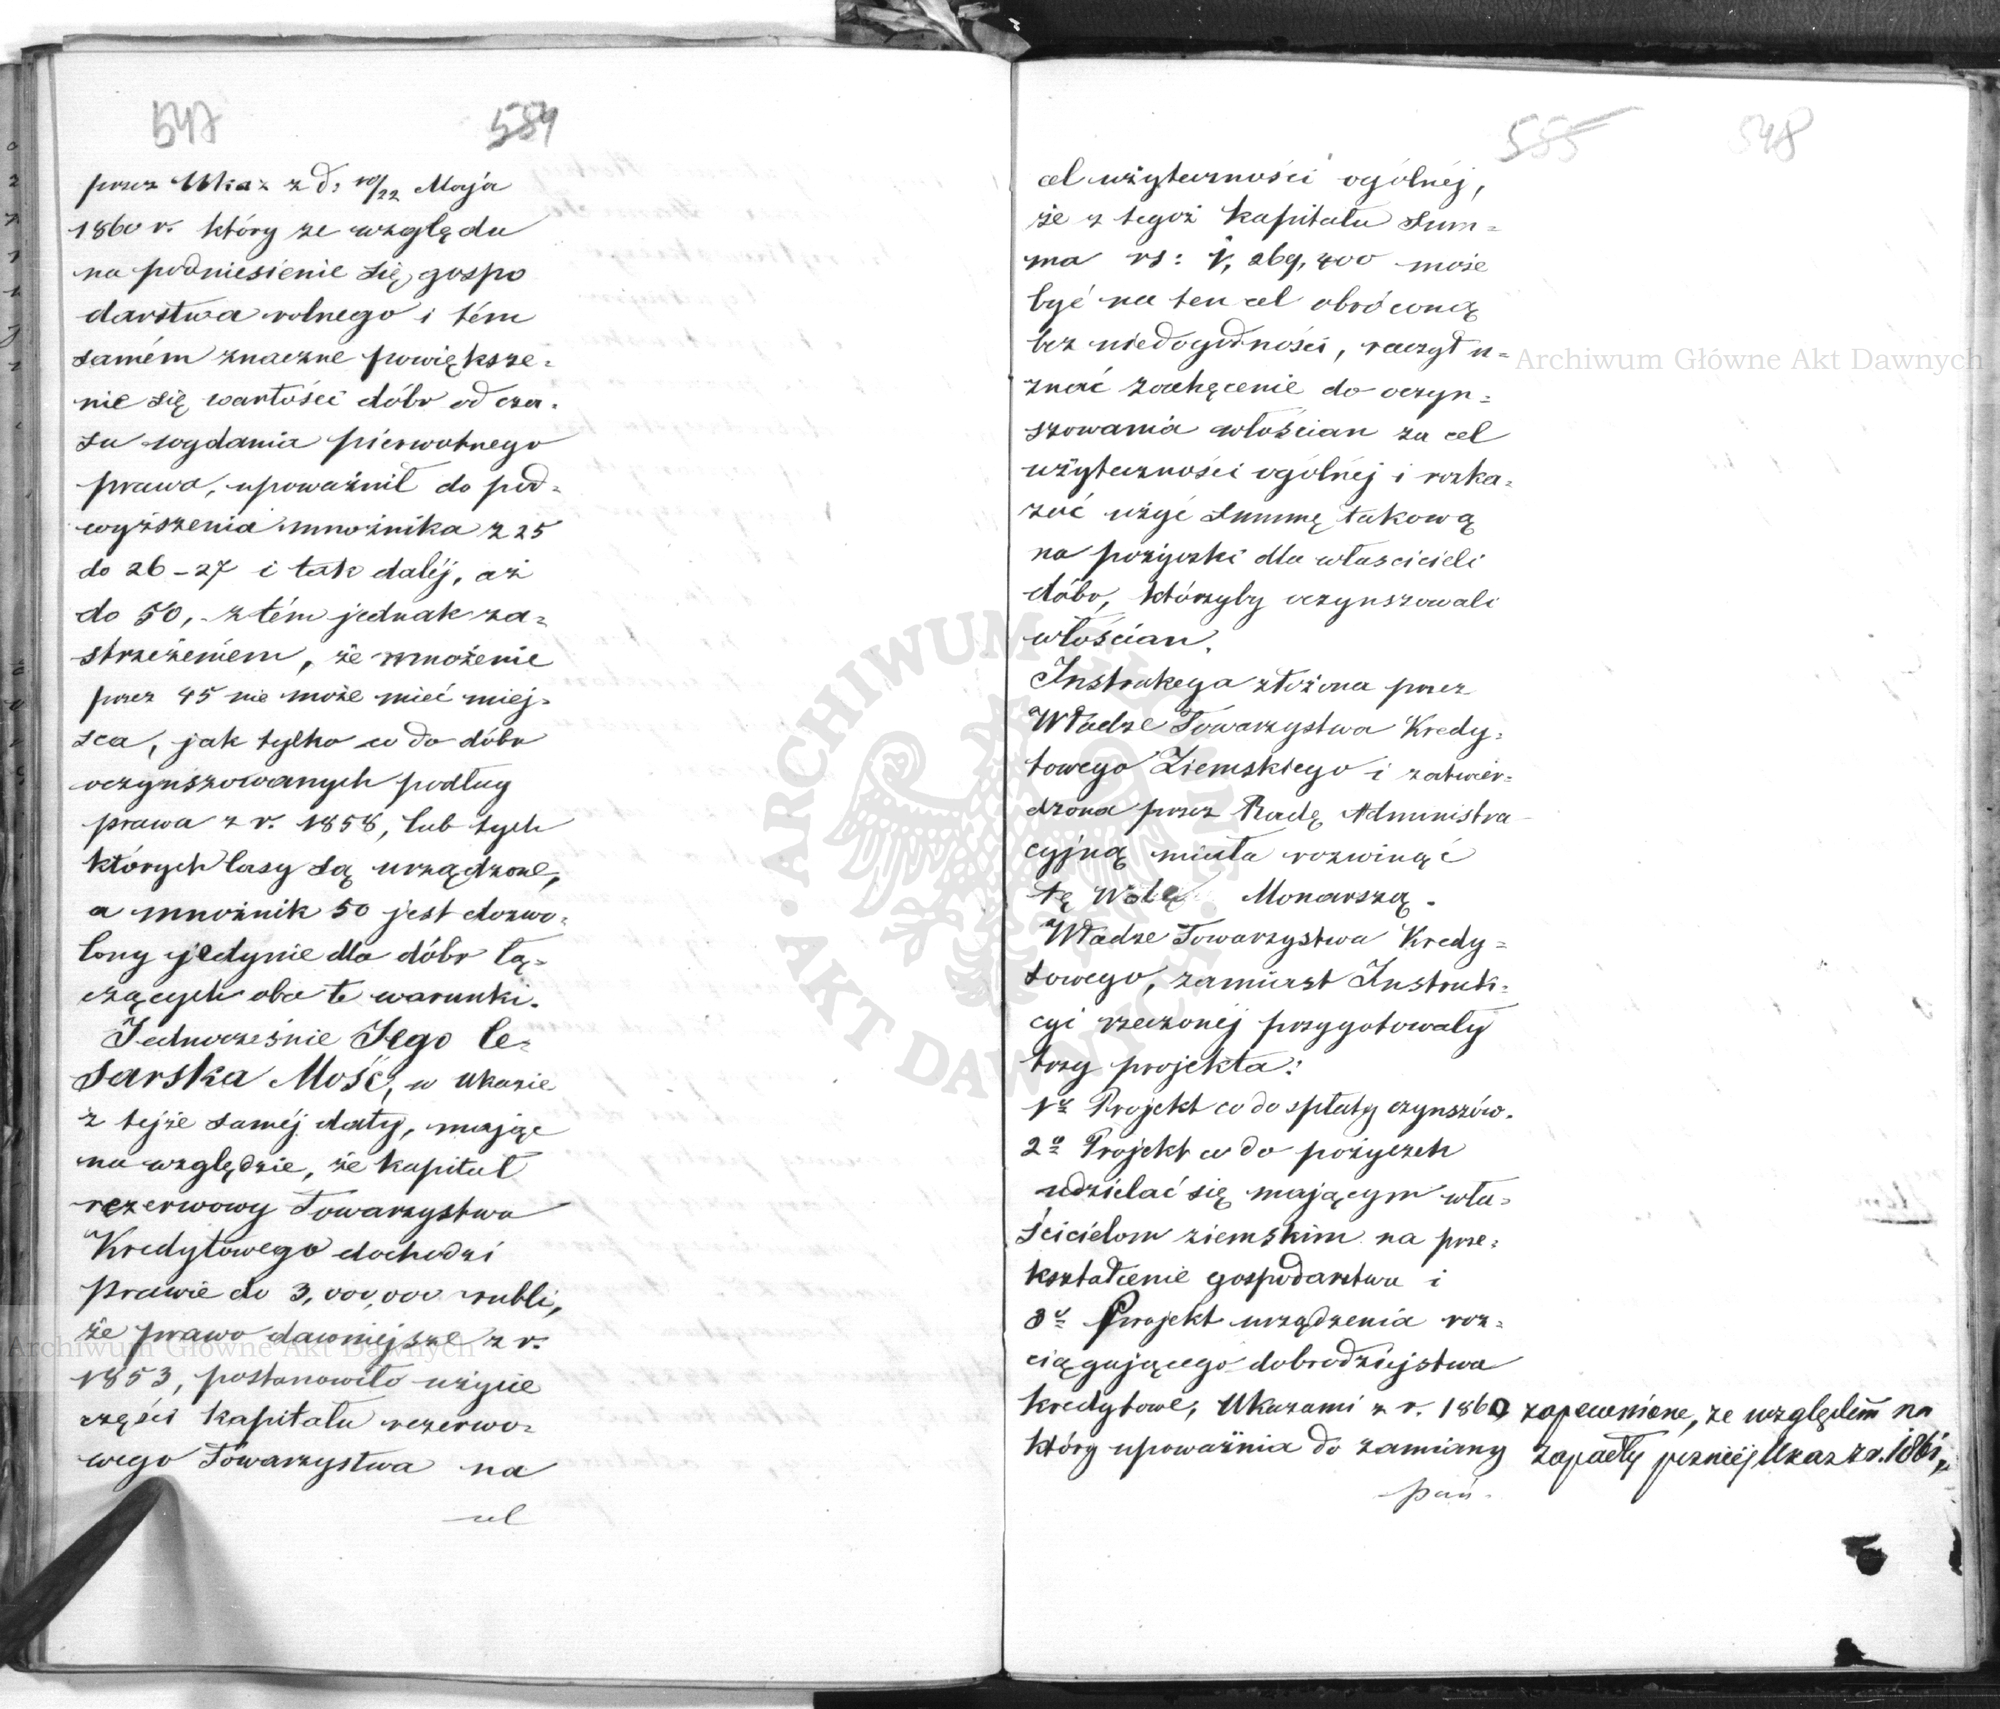 547
584
przez Ukaz z d: 10/22 Maja
1860 r. który ze względu
na podniesienie się gospo
darstwa rolnego i tém
samém znaczne powiększe=
nie się wartości dóbr od cza=
su wydania pierwotnego
prawa, upoważnił do pod=
wyższenia mnożnika z 25
do 26–27 i tak daléj, aż
do 50, z tém jednak za=
strzeżeniem, że mnożenie
przez 45 nie może mieć miej=
sca, jak tylko co do dóbr
oczynszowanych podług
prawa z r. 1858, lub tych
których lasy są urządzone,
a mnożnik 50 jest dozwo=
lony jedynie dla dóbr łą=
czących oba te warunki.
Jednocześnie Jego Ce=
sarska Mość, w ukazie
z tejże saméj daty, mając
na względzie, że kapitał
rezerwowy Towarzystwa
Kredytowego dochodzi
prawie do 3,000,000 rubli,
że prawo dawniejsze z r.
1853, postanowiło użycie
części kapitału rezerwo=
wego Towarzystwa na
cel
555
548
cel użyteczności ogólnéj,
że z tegoż kapitału sum=
ma rs: 1,269,400 może
być na ten cel obróconą
bez niedogodności, raczył u=
znać zachęcenie do oczyn=
szowania włościan za cel
użyteczności ogólnéj i rozka=
zać użyć summę takową
na pożyczki dla właścicieli
dóbr, którzyby oczynszowali
włościan.
Instrukcya złożona przez
Władze Towarzystwa Kredy=
towego Ziemskiego i zatwier=
dzona przez Radę Administra
cyjną miała rozwinąć
tę Wolę Monarszą.
Władze Towarzystwa Kredy=
towego, zamiast Instruk=
cyi rzeczonéj przygotowały
trzy projekta:
1o Projekt co do spłaty czynszów.
2o Projekt co do pożyczek
udzielać się mającym wła=
ścicielom ziemskim na prze=
kształcenie gospodarstwa i
3o Projekt urządzenia roz=
ciągającego dobrodziejstwa
kredytowe, Ukazami z r. 1860 zapewnione, ze względem na
który upoważnia do zamiany zapadły pozniéj Ukaz z r. 1861,
pań=
Archiwum Główne Akt Dawnych
Archiwum Główne Akt Dawnych
ARCHIWUM GŁÓWNE AKT DAWNYCH